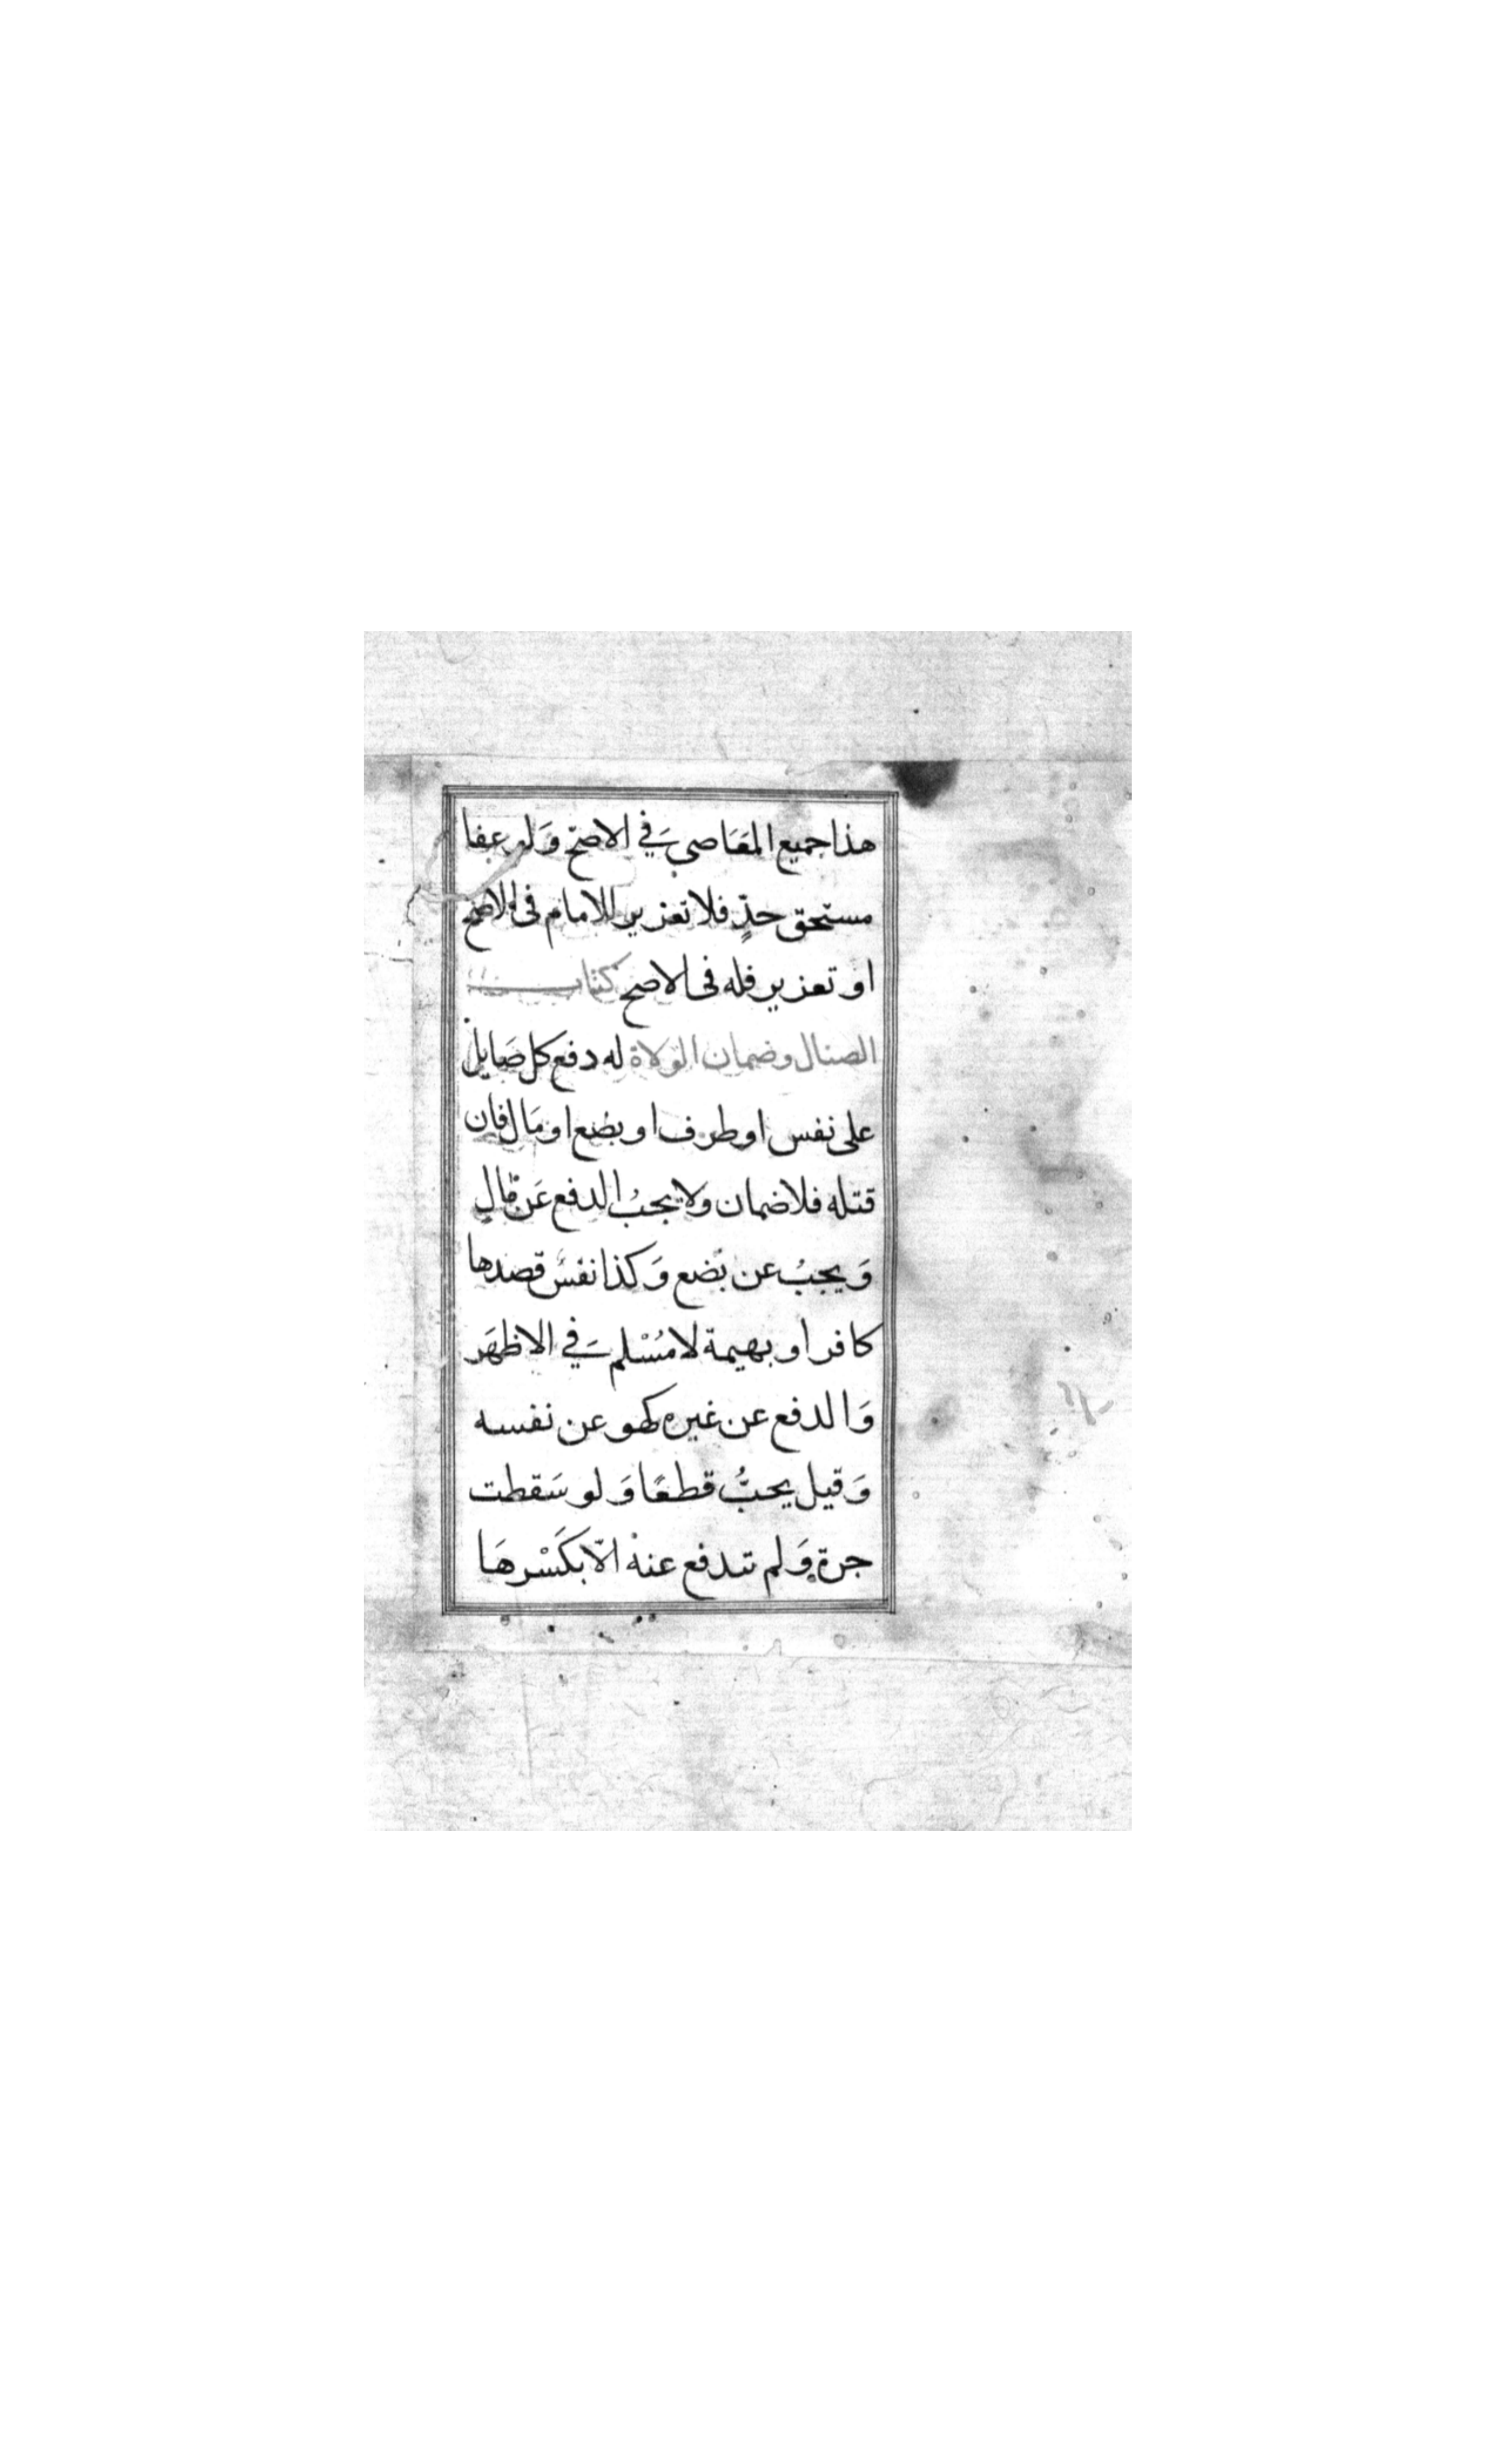 هذا جميع المَعَاصي فَي الاصحّ وَلو عفا
مستحق حدٍّ فلا تعزير للامام في الاصح
او تعزير فله في الاصح كتاب
الصيال وضمان الولاة له دفع كل صَايلٍ
على نفس او طرف او بضع او مَال فان
قتله فلا ضمان ولا يجبُ الدفع عَن مَالٍ
وَيجبُ عن بُضع وَكذا نفسٌ قصدها
كافر او بهيمة لا مُسْلم فَي الاظهَر
وَالدفع عن غيره كهو عن نفسه
وَقيل يجبُ قطعًا وَلو سَقطت
جرة وَلم تندفع عنهْ الّا بكَسْرهَا